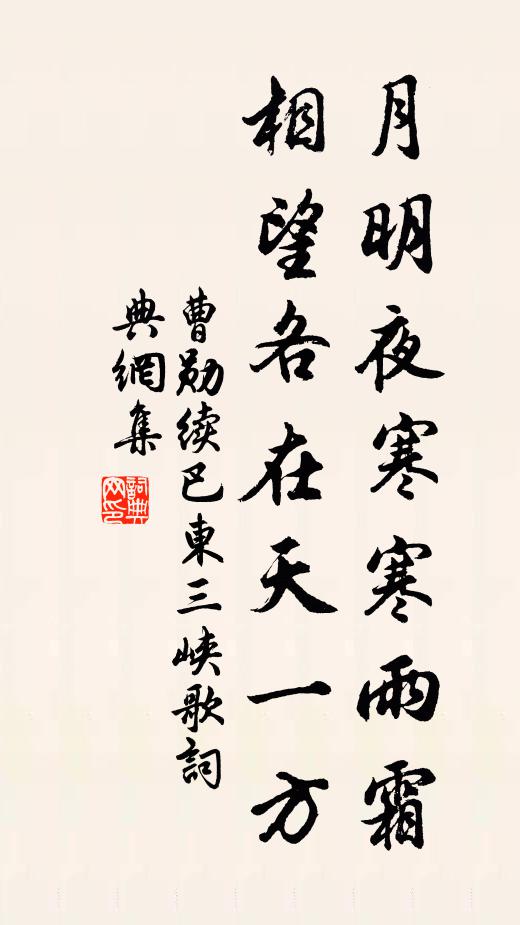 月明夜寒寒雨霜
相望各在天一方
曹勋续巴東三峡歌詞
典網集
詞典网印